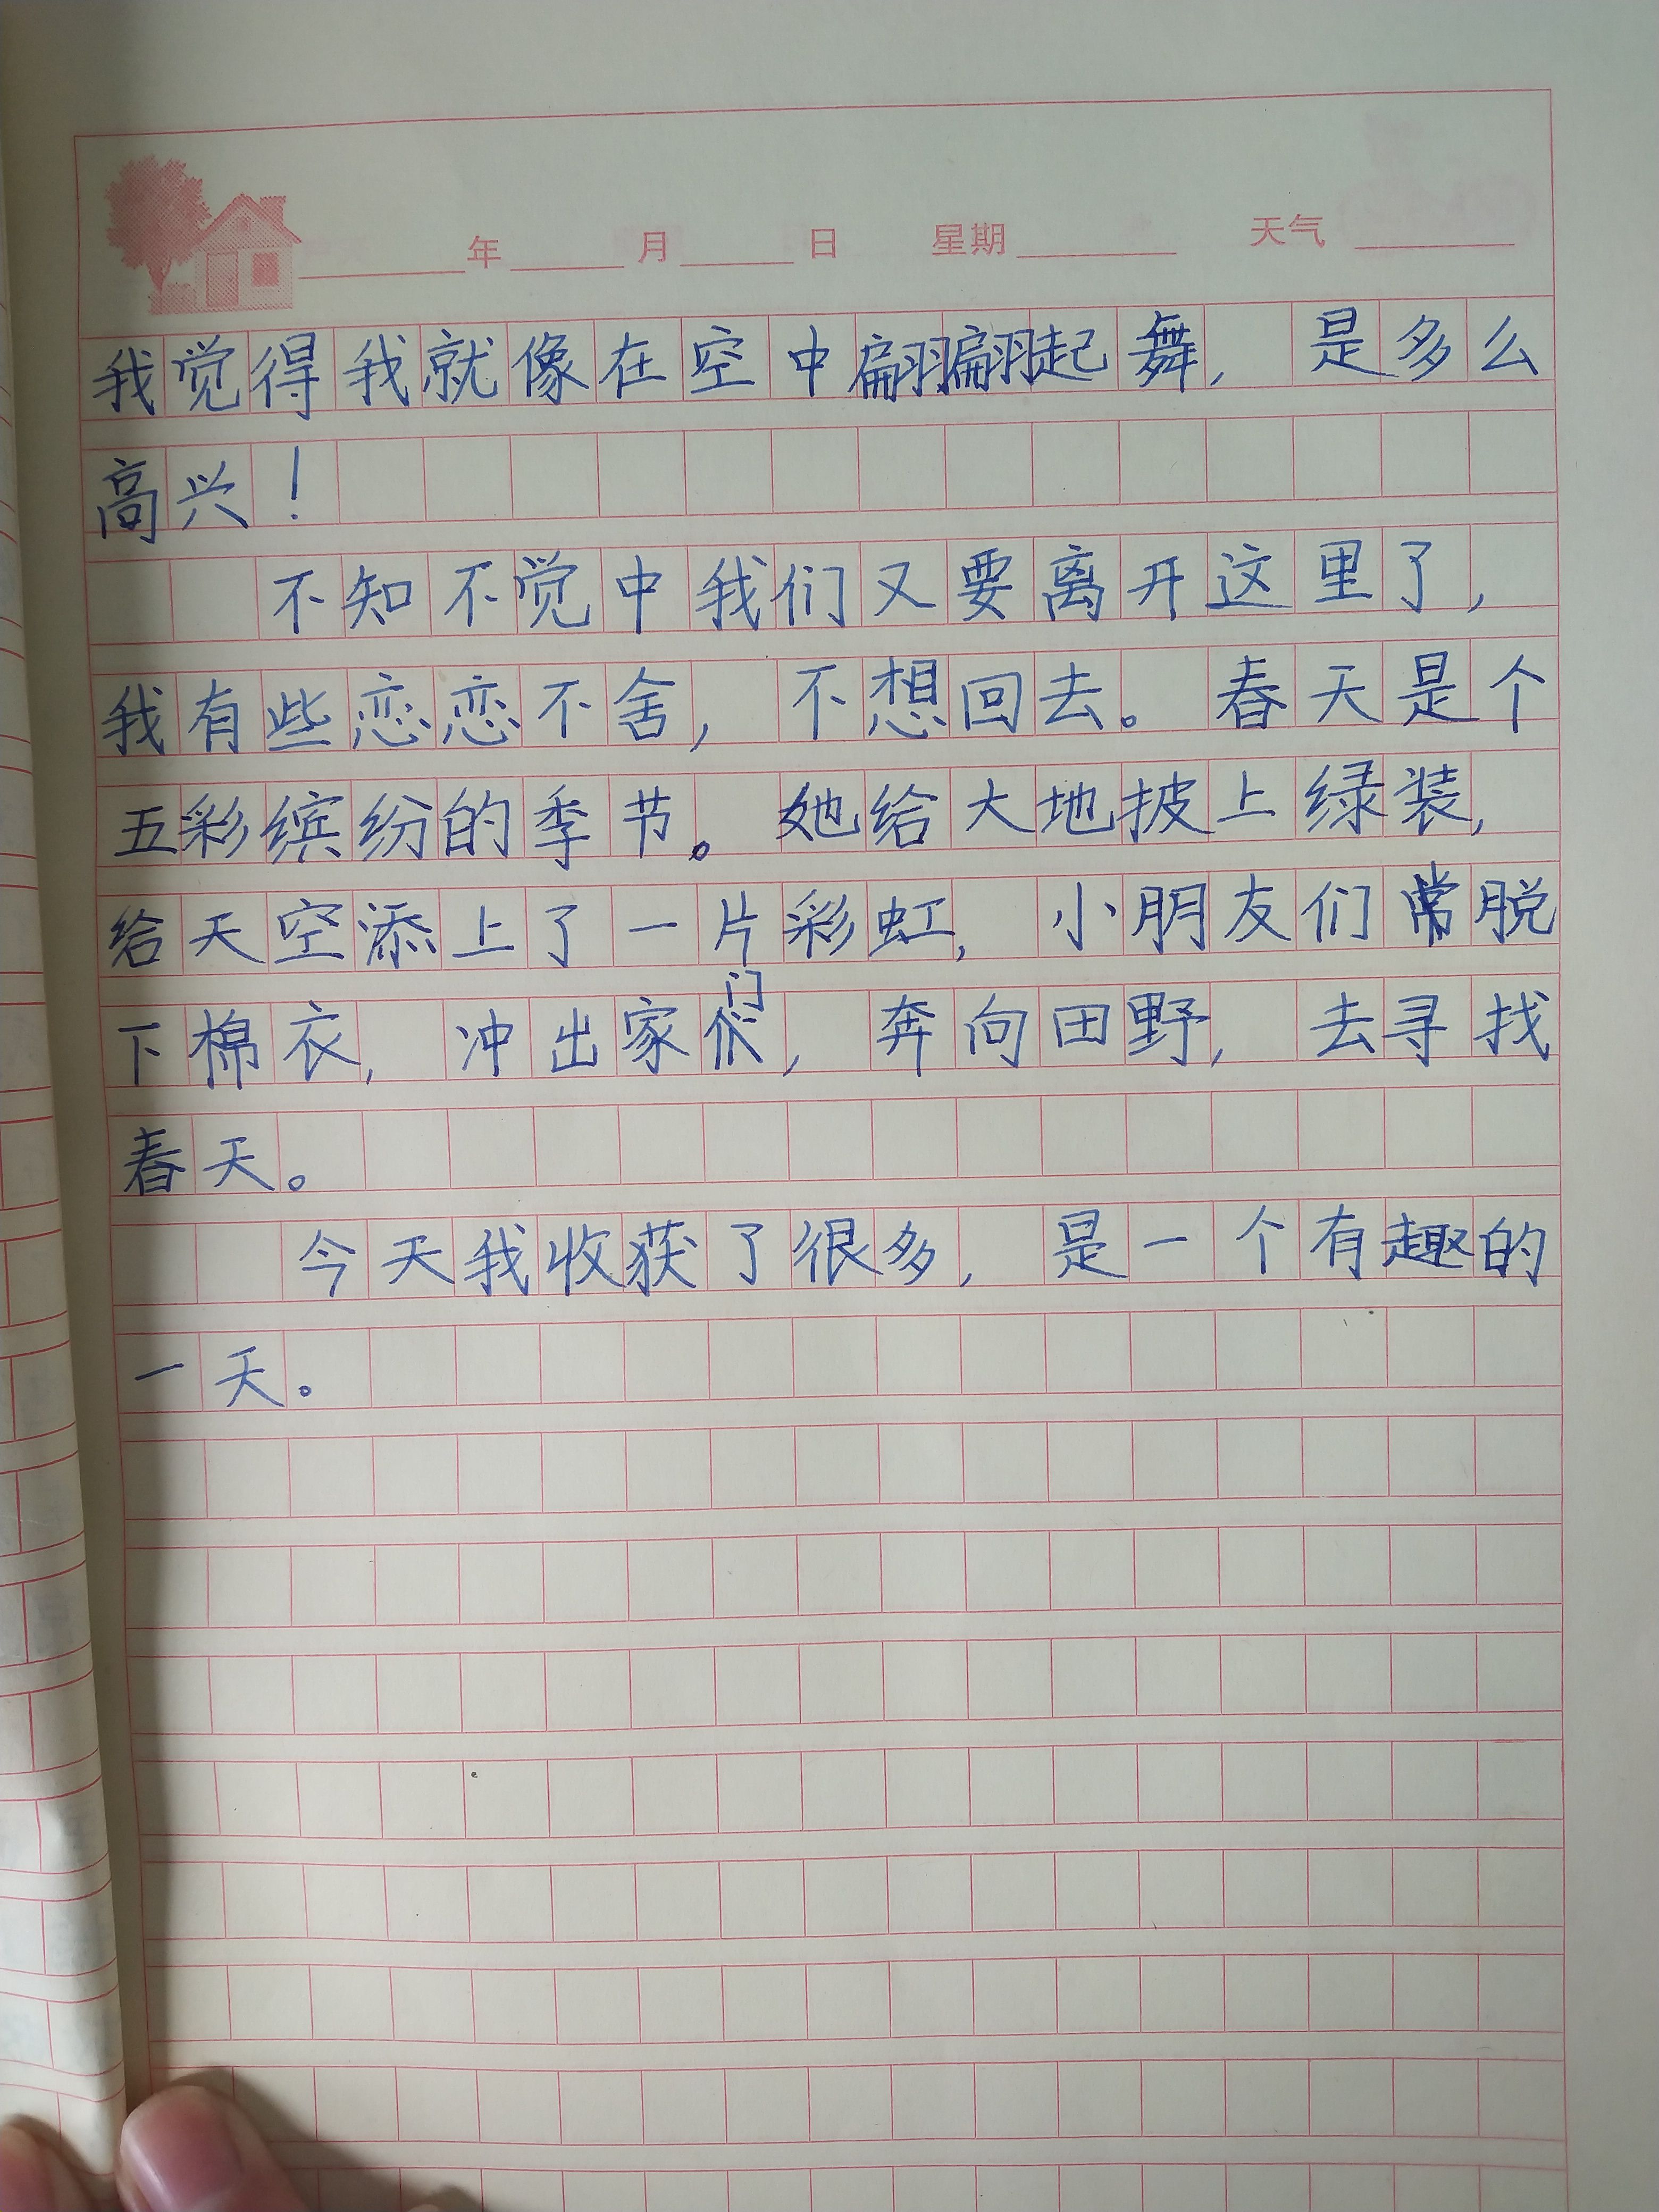 年 月 日 星期 天气
我觉得我就像在空中翩翩起舞，是多么
高兴！
不知不觉中我们又要离开这里了，
我有些恋恋不舍，不想回去。春天是个
五彩缤纷的季节。她给大地披上绿装，
给天空添上了一片彩虹，小朋友们常脱
门
下棉衣，冲出家，奔向田野，去寻找
春天。
今天我收获了很多，是一个有趣的
一天。